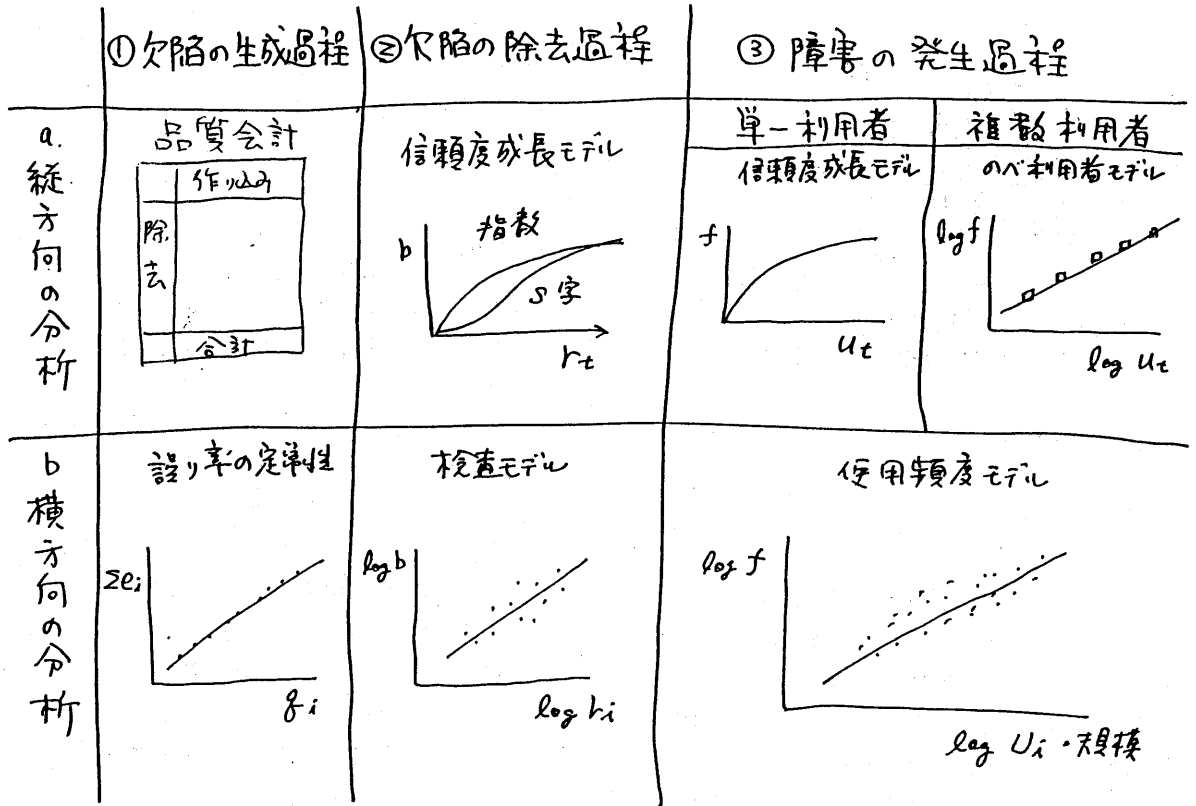 ①欠陥の生成過程
②欠陥の除去過程
③ 障害の発生過程
a.縦方向の分析
品質会計
作り込み
除去
合計
信頼度成長モデル
b
指数
S字
rt
単一利用者
信頼度成長モデル
f
ut
複数利用者
のべ利用者モデル
log f
log ut
b横方向の分析
誤り率の定常性
Σei
gi
検査モデル
log b
log ri
使用頻度モデル
log f
log Ui・規模